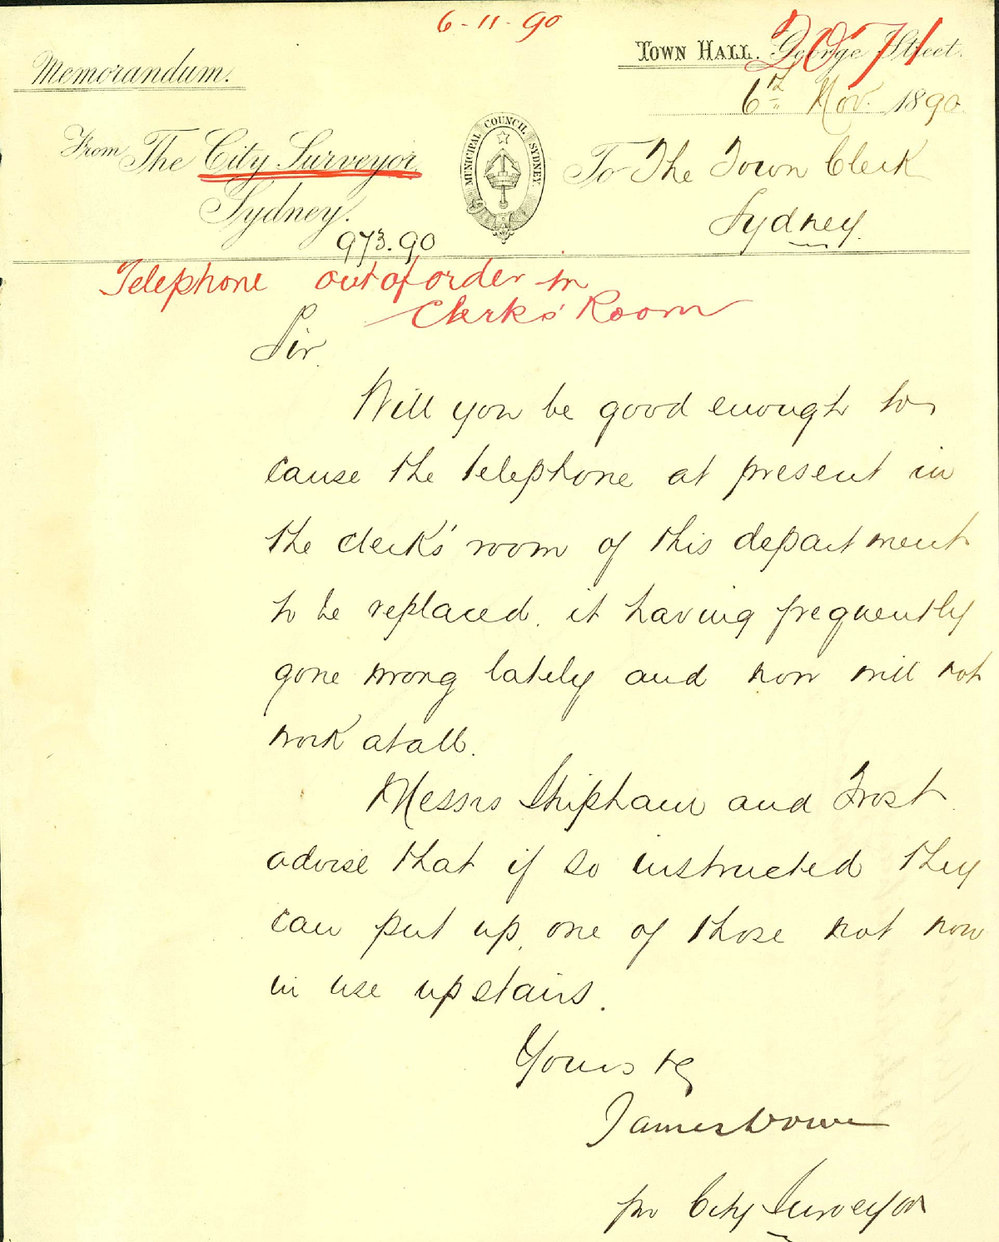 6-11-90
2071
Town Hall. George Street.
Memorandum.
6th Nov. 1890
From The City Surveyor
Sydney.
MUNICIPAL COUNCIL SYDNEY
To The Town Clerk
Sydney.
973.90
Telephone out of order in
Clerks' Room
Sir.
Will you be good enough to
cause the telephone at present in
the clerk's room of this department
to be replaced. it having frequently
gone wrong lately and now will not
work at all.
Messrs Shipham and Frost
advise that if so instructed they
can put up one of those not now
in use upstairs.
Yours &c
James
pro City Surveyor